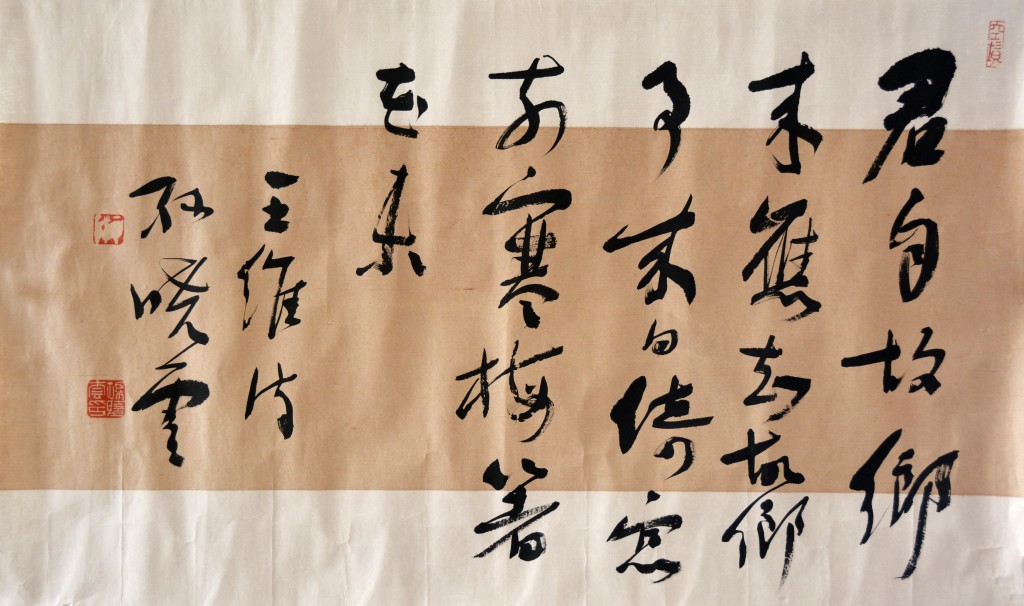 君自故鄉
來應知故鄉
事來日綺窗
前寒梅著
花未
王維詩
孙晓云